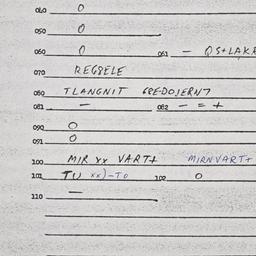 040 0
050 0
060 0 061 - QS+LAKA
070 REGSELE
080 TLANGNIT GREDOJERN7
081 - 082 - = +
090 0
091 0
100 MIR xx VART+ MIRNVART+
101 TU xx)-TO 102 0
110 -